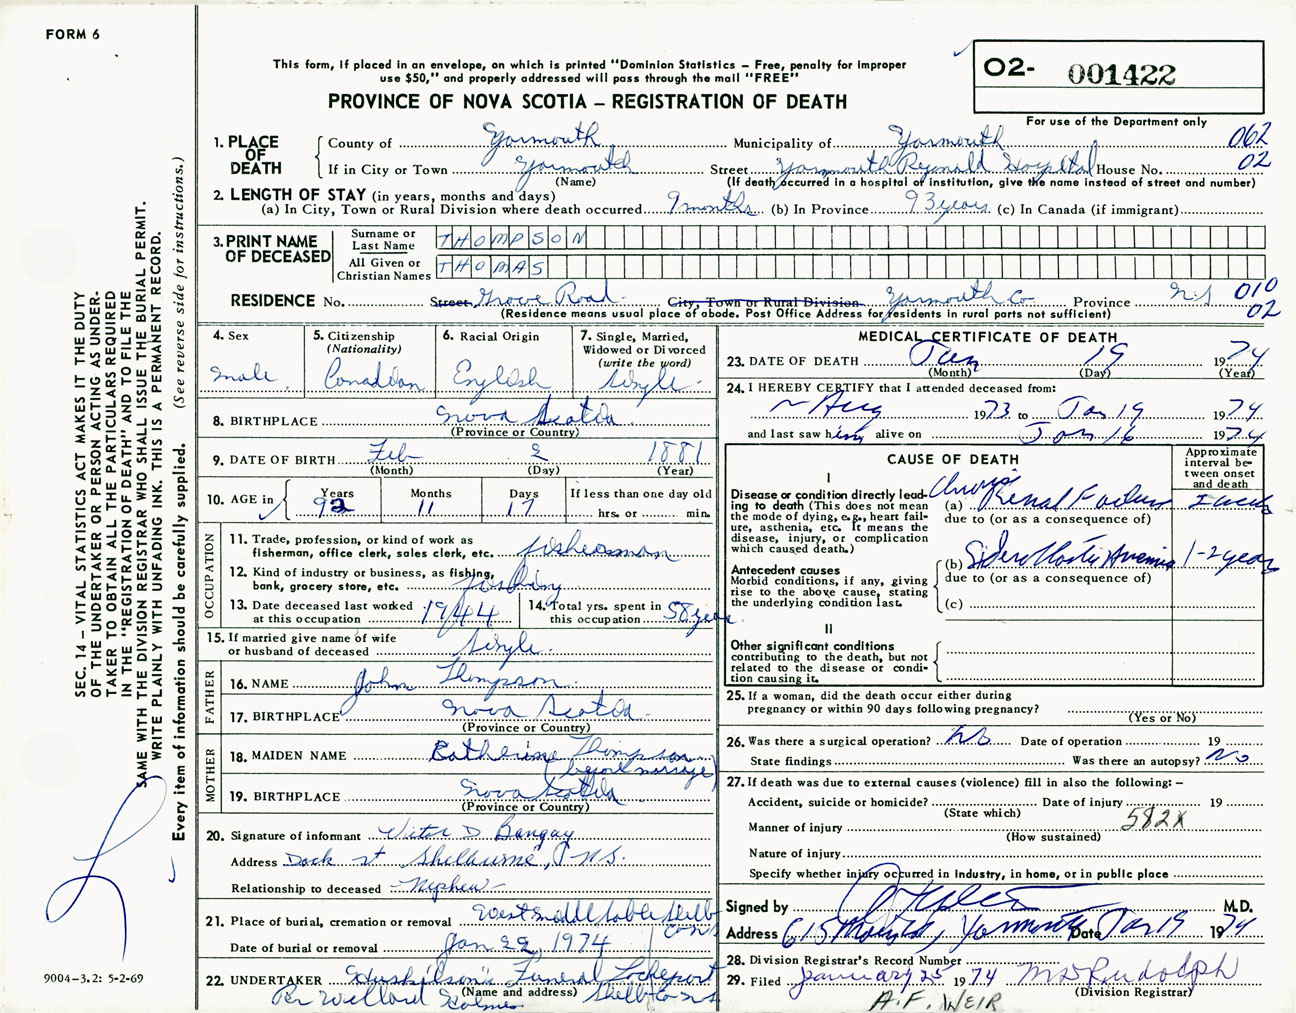 FORM 6
This form, if placed in an envelope, on which is printed "Dominion Statistics – Free, penalty for improper
use $50," and properly addressed will pass through the mail "FREE"
PROVINCE OF NOVA SCOTIA – REGISTRATION OF DEATH
02- 001422
For use of the Department only
1. PLACE OF DEATH
County of Yarmouth Municipality of Yarmouth 062
If in City or Town Yarmouth Street Yarmouth Regional Hospital House No. 02
(Name) (If death occurred in a hospital or institution, give the name instead of street and number)
2. LENGTH OF STAY (in years, months and days)
(a) In City, Town or Rural Division where death occurred 9 months (b) In Province 93 years (c) In Canada (if immigrant)
3. PRINT NAME OF DECEASED
Surname or Last Name THOMPSON
All Given or Christian Names THOMAS
RESIDENCE No. Street Grove Road City, Town or Rural Division Yarmouth Co Province N.S 010
(Residence means usual place of abode. Post Office Address for residents in rural parts not sufficient) 02
4. Sex
male
5. Citizenship
(Nationality)
Canadian
6. Racial Origin
English
7. Single, Married,
Widowed or Divorced
(write the word)
Single
8. BIRTHPLACE Nova Scotia
(Province or Country)
9. DATE OF BIRTH Feb 2 1881
(Month) (Day) (Year)
10. AGE in Years Months Days If less than one day old
92 11 17 hrs. or min.
OCCUPATION
11. Trade, profession, or kind of work as
fisherman, office clerk, sales clerk, etc. fisherman
12. Kind of industry or business, as fishing,
bank, grocery store, etc. fishing
13. Date deceased last worked
at this occupation 1944
14. Total yrs. spent in
this occupation 58 years
15. If married give name of wife
or husband of deceased Single
FATHER
16. NAME John Thompson
17. BIRTHPLACE Nova Scotia
(Province or Country)
MOTHER
18. MAIDEN NAME Catherine Thompson
(before marriage)
19. BIRTHPLACE Nova Scotia
(Province or Country)
20. Signature of informant Victor D Bangay
Address Dock st Shelburne, N.S.
Relationship to deceased Nephew
21. Place of burial, cremation or removal West Middle Sable Shelb
Co N S
Date of burial or removal Jan 22, 1974
22. UNDERTAKER Huskilson's Funeral Lockeport
(Name and address) Shelb Co N S
Per Willard Holmes
MEDICAL CERTIFICATE OF DEATH
23. DATE OF DEATH Jan 19 1974
(Month) (Day) (Year)
24. I HEREBY CERTIFY that I attended deceased from:
~ Aug 1973 to Jan 19 1974
and last saw him alive on Jan 16 1974
CAUSE OF DEATH
Approximate
interval be-
tween onset
and death
I
Disease or condition directly lead-
ing to death (This does not mean
the mode of dying, e.g., heart fail-
ure, asthenia, etc. It means the
disease, injury, or complication
which caused death.)
(a) Chronic Renal Failure
due to (or as a consequence of)
Antecedent causes
Morbid conditions, if any, giving
rise to the above cause, stating
the underlying condition last.
(b) Sideroblastic Anemia 1-2 years
due to (or as a consequence of)
(c)
II
Other significant conditions
contributing to the death, but not
related to the disease or condi-
tion causing it.
25. If a woman, did the death occur either during
pregnancy or within 90 days following pregnancy?
(Yes or No)
26. Was there a surgical operation? No Date of operation 19
State findings Was there an autopsy? No
27. If death was due to external causes (violence) fill in also the following: –
Accident, suicide or homicide? Date of injury 19
(State which) 582X
Manner of injury
(How sustained)
Nature of injury
Specify whether injury occurred in industry, in home, or in public place
Signed by M.D.
Address 615 Main St, Yarmouth Date Jan 19 1974
28. Division Registrar's Record Number
29. Filed January 25 1974 M D Rudolph
(Division Registrar)
A.F. WEIR
SEC. 14 – VITAL STATISTICS ACT MAKES IT THE DUTY
OF THE UNDERTAKER OR PERSON ACTING AS UNDER-
TAKER TO OBTAIN ALL THE PARTICULARS REQUIRED
IN THE "REGISTRATION OF DEATH" AND TO FILE THE
SAME WITH THE DIVISION REGISTRAR WHO SHALL ISSUE THE BURIAL PERMIT.
WRITE PLAINLY WITH UNFADING INK. THIS IS A PERMANENT RECORD.
Every item of information should be carefully supplied. (See reverse side for instructions.)
9004–3.2: 5-2-69